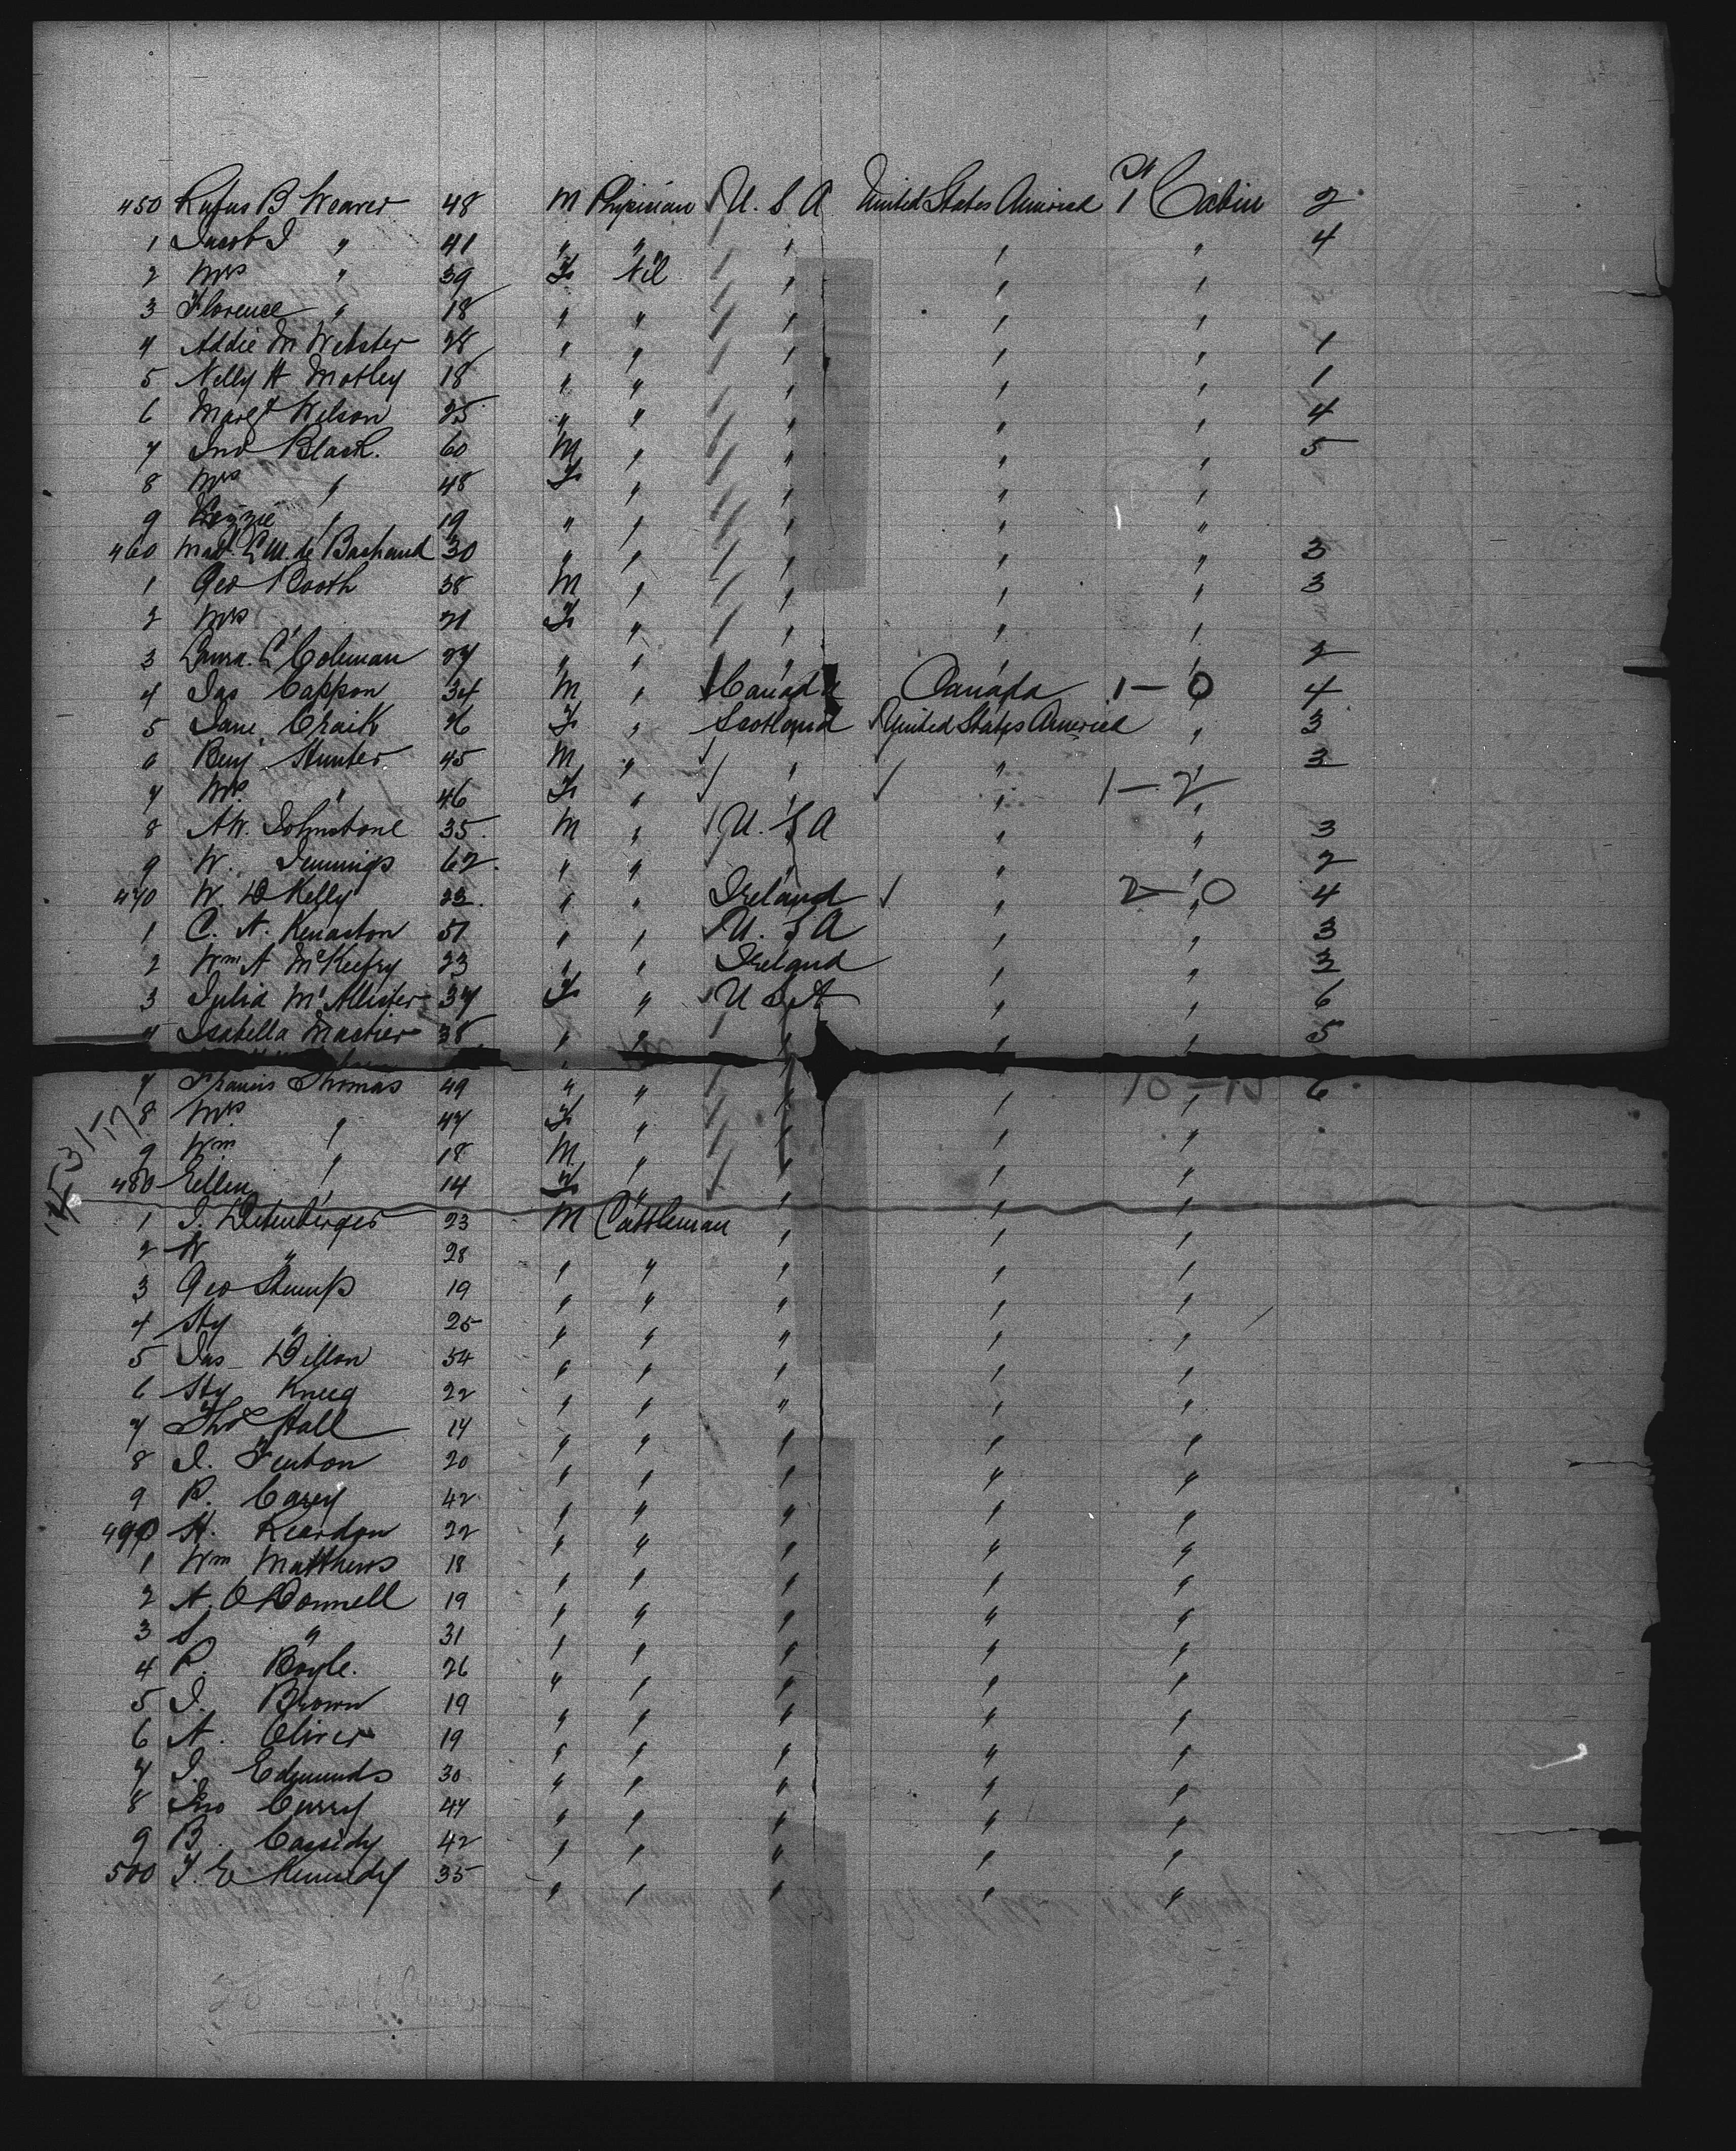 450 Rufus B Weaver 48 M Physician U. S A United States America 1st Cabin 2
1 Jacob J " 41 " " " " " 4
2 Mrs " 39 F Nil " " "
3 Florence " 18 " " " " "
4 Addie M Webster 28 " " " " " 1
5 Nelly H Motley 18 " " " " " 1
6 Margt Wilson 25 " " " " " 4
7 Jno Black. 60 M " " " " 5
8 Mrs " 48 F " " " "
9 " 19 " " " " "
460 Mad. de 30 " " " " " 3
1 Geo Booth 38 M " " " " 3
2 Mrs " 21 F " " " "
3 Laura. C Coleman 27 " " " " " 2
4 Jas Cappon 34 M " Canada Canada 1 — 0 4
5 Jane Craik 26 F " Scotland United States America " 3
6 Benj Hunter 45 M " " " " 3
7 Mrs. " 46 F " " " 1 — 2
8 A W. Johnstone 35 M " U. S A " " 3
9 W. Jennings 62 " " " " " 2
470 W. D Kelly 23 " " Ireland " 2 — 0 4
1 C. A. Kenaston 51 " " U. S A " " 3
2 Wm A McKeefry 23 " " Ireland " " 3
3 Julia McAllister 37 F " U S A " " 6
4 Isabella 38 " " " " " 5
7 Francis Thomas 49 " " " " 6
8 Mrs. " 47 F " " " "
9 Wm " 18 M " " " "
480 Ellen " 14 F " " " "
1 J. 23 M Cattleman " " "
2 W " 28 " " " " "
3 Geo Stumps 19 " " " " "
4 Hy " 25 " " " " "
5 Jas Dillon 54 " " " " "
6 Hy 22 " " " " "
7 Thos Hall 17 " " " " "
8 J. Fenton 20 " " " " "
9 P. Carey 42 " " " " "
490 H. Reardon 22 " " " " "
1 Wm Matthews 18 " " " " "
2 A. O'Donnell 19 " " " " "
3 S " 31 " " " " "
4 P. Boyle. 26 " " " " "
5 J. Brown 19 " " " " "
6 A. Oliver 19 " " " " "
7 J. Edmunds 30 " " " " "
8 Jno Curry 47 " " " " "
9 B. Cassidy 42 " " " " "
500 J. E Kennedy 35 " " " " "
20 Cattlemen